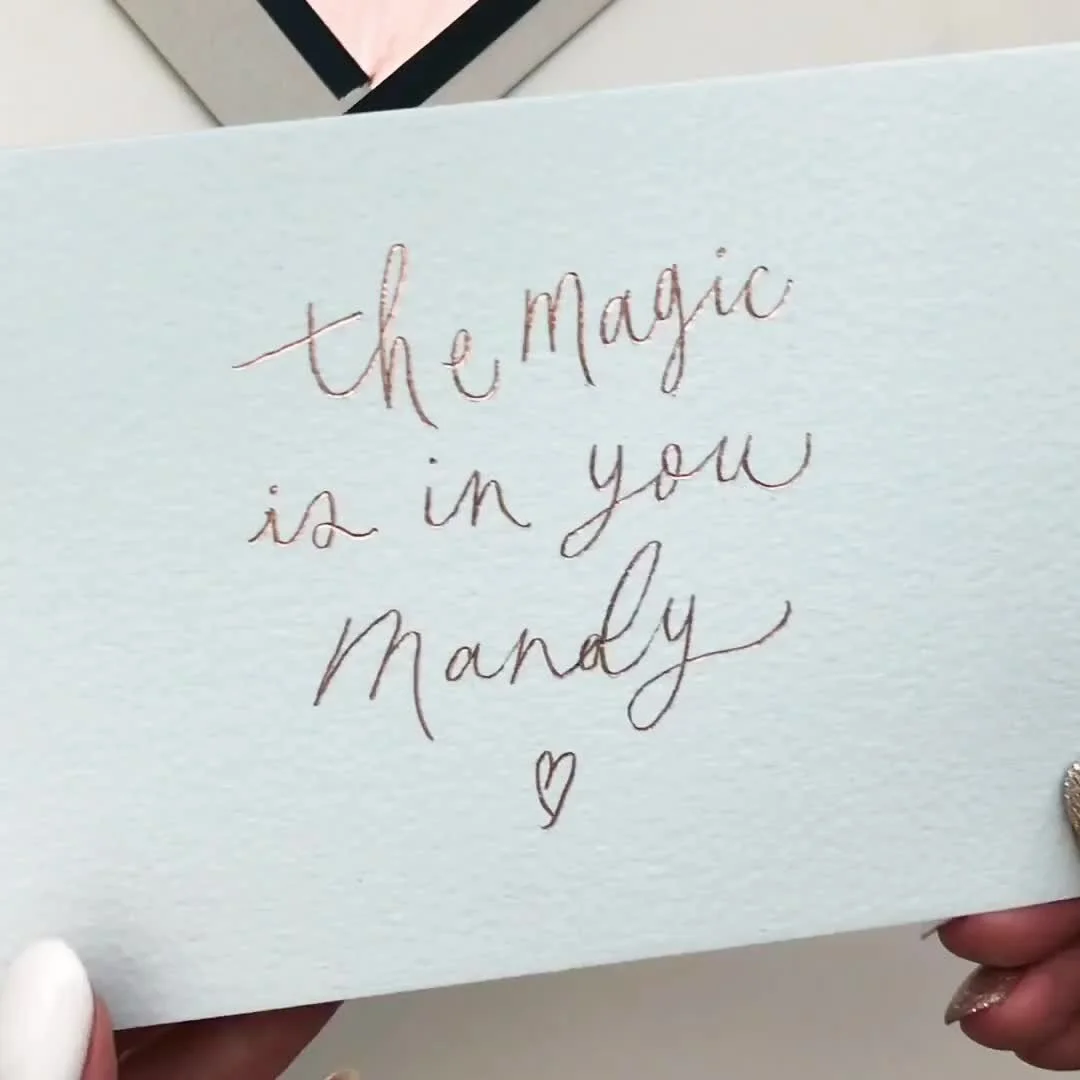 the magic
is in you
Mandy